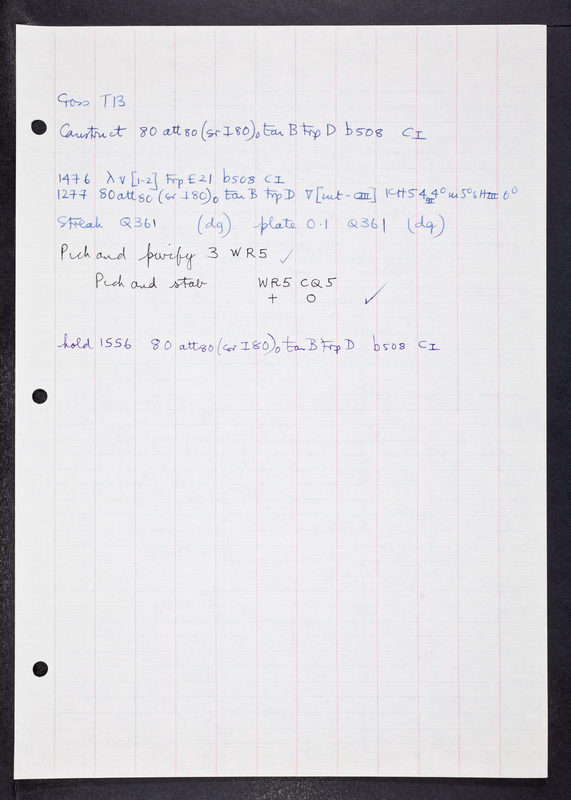 Cross T13
Construct 80 att80 (sr I80)₀ tan B trp D b508 CI
1476 λ∇[1-2] trp E21 b508 CI
1277 80att80 (sr I80)₀ tan B trp D ∇[int-CIII] KH54 4° m 5° sHIII 6°
Streak Q361 (dg) plate 0.1 Q361 (dg)
Pick and purify 3 WR5 ✓
Pick and stab WR5 CQ5
+ O ✓
hold 1556 80 att80 (sr I80)₀ tan B trp D b508 CI